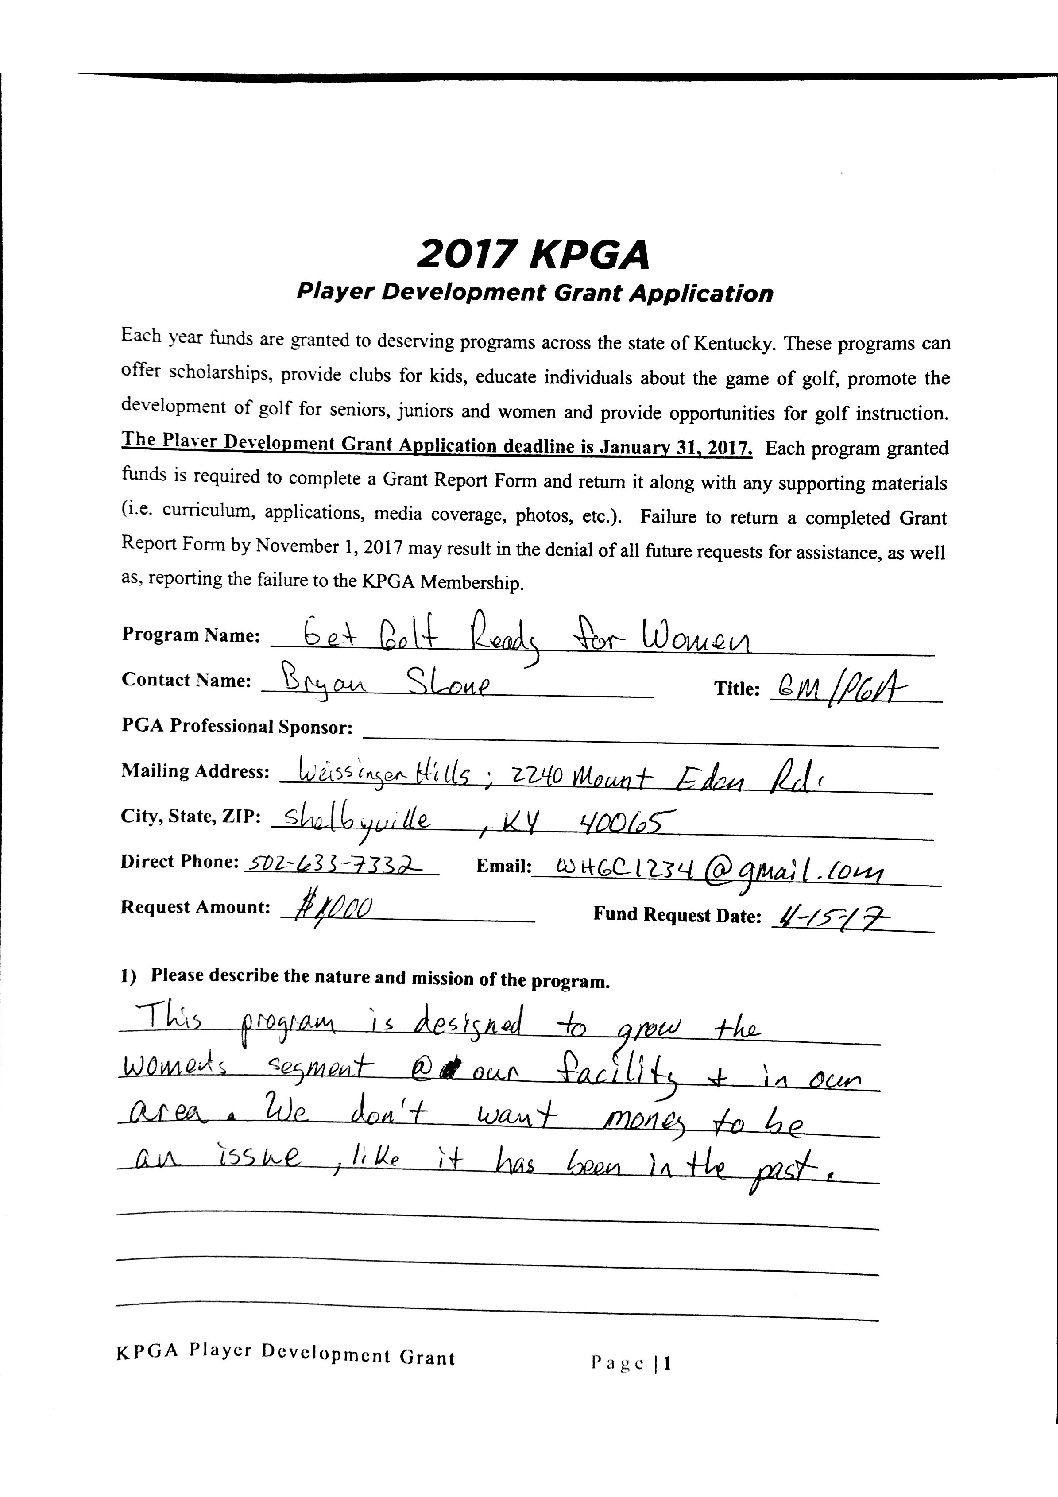 2017 KPGA
Player Development Grant Application
Each year funds are granted to deserving programs across the state of Kentucky. These programs can
offer scholarships, provide clubs for kids, educate individuals about the game of golf, promote the
development of golf for seniors, juniors and women and provide opportunities for golf instruction.
The Player Development Grant Application deadline is January 31, 2017. Each program granted
funds is required to complete a Grant Report Form and return it along with any supporting materials
(i.e. curriculum, applications, media coverage, photos, etc.). Failure to return a completed Grant
Report Form by November 1, 2017 may result in the denial of all future requests for assistance, as well
as, reporting the failure to the KPGA Membership.
Program Name: Get Golf Ready for Women
Contact Name: Bryan Stone Title: GM/PGA
PGA Professional Sponsor:
Mailing Address: Weissinger Hills; 2240 Mount Eden Rd.
City, State, ZIP: Shelbyville, KY 40065
Direct Phone: 502-633-7332 Email: WHGC1234@gmail.com
Request Amount: $1,000 Fund Request Date: 4-15-17
1) Please describe the nature and mission of the program.
This program is designed to grow the
women's segment @ our facility + in our
area. We don't want money to be
an issue, like it has been in the past.
KPGA Player Development Grant Page | 1